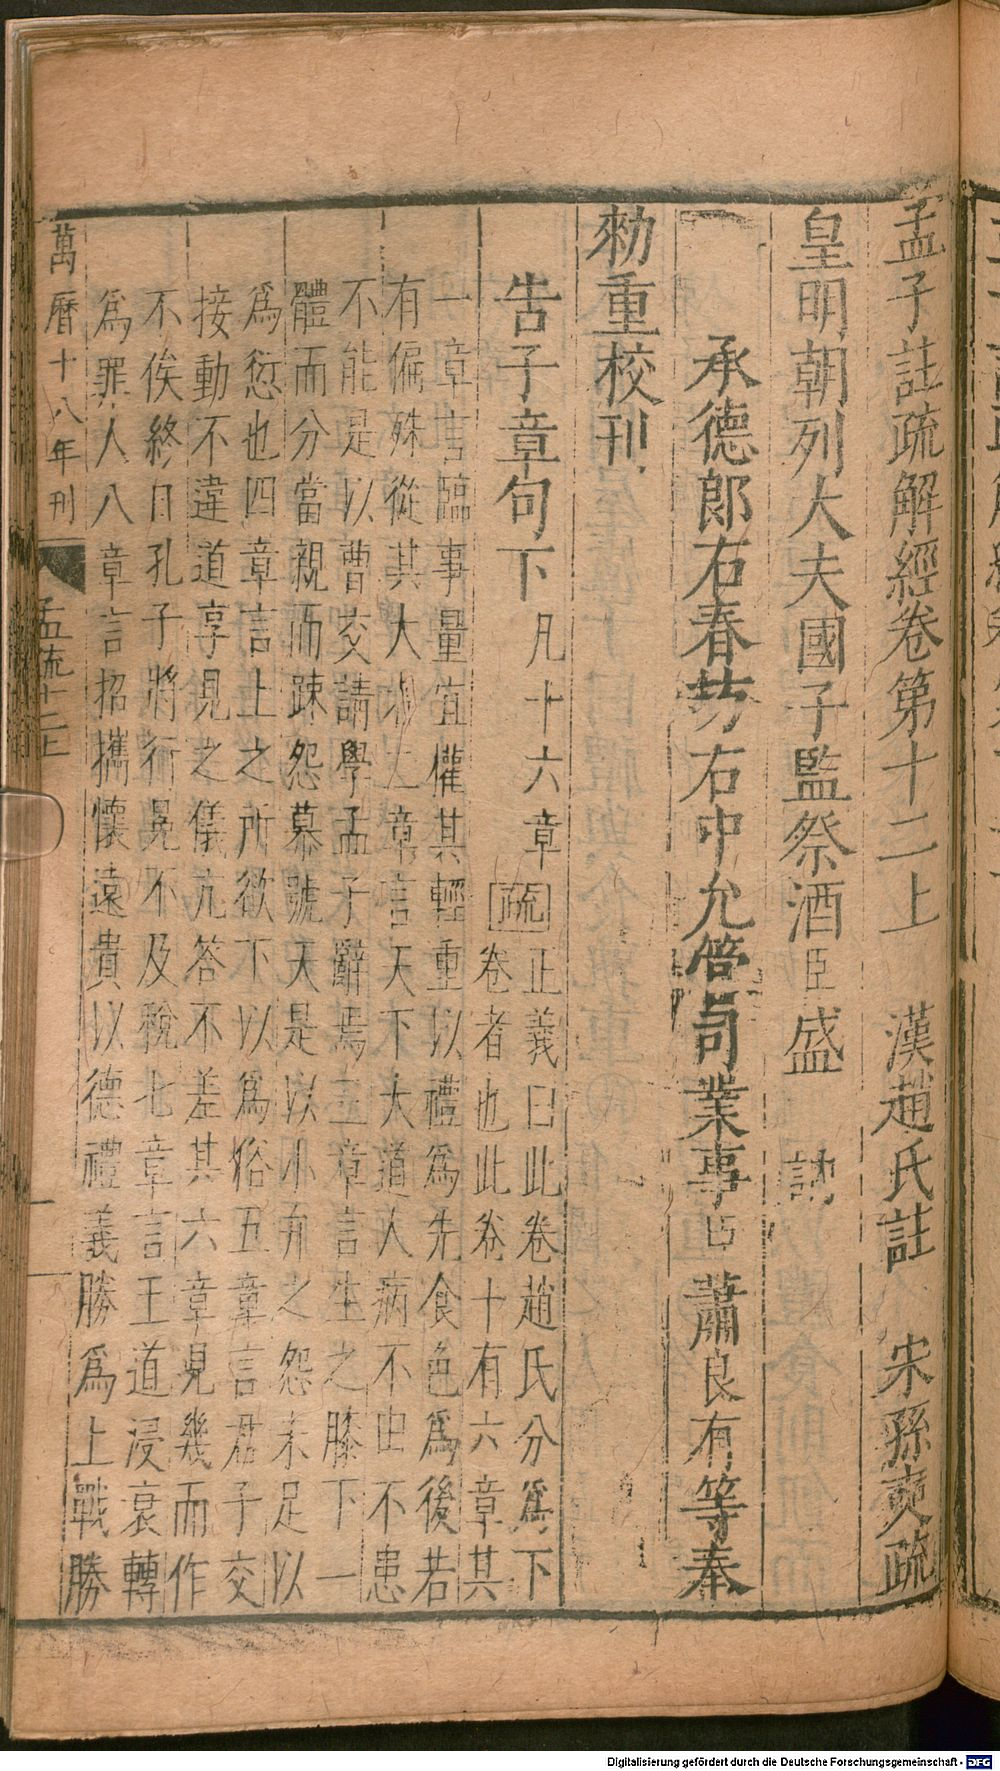 孟子註疏解經卷第十二上 漢趙氏註 宋孫奭疏
皇明朝列大夫國子監祭酒臣盛 訥
承德郎右春坊右中允管司業事臣蕭良有等奉
勑重校刊
告子章句下 凡十六章 疏 正義曰此卷趙氏分為下
卷者也此卷十有六章其
一章言臨事量宜權其輕重以禮為先食色為後若
有偏殊從其大者二章言天下大道人病不由不患
不能是以曹交請學孟子辭焉三章言生之膝下一
體而分當親而踈怨慕號天是以小弁之怨未足以
為愆也四章言上之所欲下以為俗五章言君子交
接動不違道享見之儀亢答不差其六章見幾而作
不俟終日孔子將行冕不及稅七章言王道浸衰轉
為罪人八章言招攜懷遠貴以德禮義勝為上戰勝
萬曆十八年刊 孟疏十二上
Digitalisierung gefördert durch die Deutsche Forschungsgemeinschaft - DFG